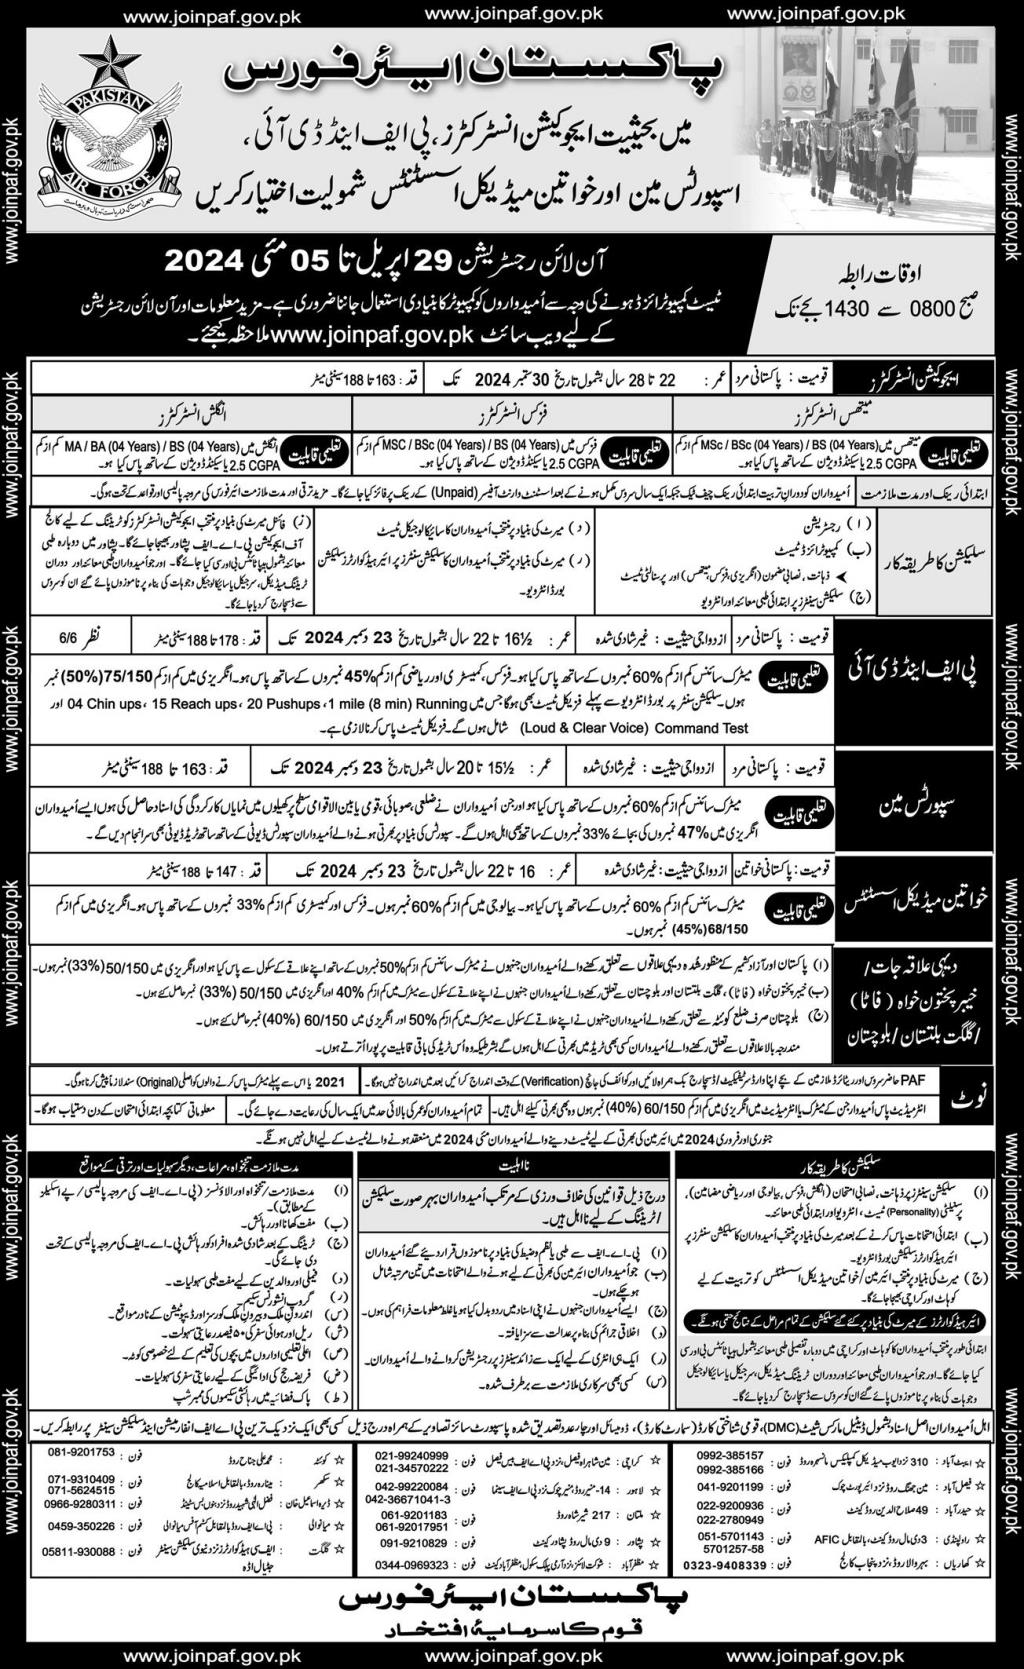 www.joinpaf.gov.pk www.joinpaf.gov.pk www.joinpaf.gov.pk
PAKISTAN
AIR FORCE
پاکستان ایئر فورس
میں بحثیت ایجوکیشن انسٹرکٹرز، پی ایف اینڈ ڈی آئی،
اسپورٹس مین اور خواتین میڈیکل اسسٹنٹس شمولیت اختیار کریں
آن لائن رجسٹریشن 29 اپریل تا 05 مئی 2024
ٹیسٹ کمپیوٹرائزڈ ہونے کی وجہ سے اُمیدواروں کو کمپیوٹر کا بنیادی استعمال جاننا ضروری ہے۔ مزید معلومات اور آن لائن رجسٹریشن
کے لیے ویب سائٹ www.joinpaf.gov.pk ملاحظہ کیجئے۔
اوقات رابطہ
صبح 0800 سے 1430 بجے تک
ایجوکیشن انسٹرکٹرز قومیت : پاکستانی مرد عمر : 22 تا 28 سال بشمول تاریخ 30 ستمبر 2024 تک قد : 163 تا 188 سینٹی میٹر
میتھس انسٹرکٹرز فزکس انسٹرکٹرز انگلش انسٹرکٹرز
تعلیمی قابلیت میتھس میں MSc / BSc (04 Years) / BS (04 Years) کم از کم
2.5 CGPA یا سیکنڈ ڈویژن کے ساتھ پاس کیا ہو۔
تعلیمی قابلیت فزکس میں MSC / BSc (04 Years) / BS (04 Years) کم از کم
2.5 CGPA یا سیکنڈ ڈویژن کے ساتھ پاس کیا ہو۔
تعلیمی قابلیت انگلش میں MA / BA (04 Years) / BS (04 Years) کم از کم
2.5 CGPA یا سیکنڈ ڈویژن کے ساتھ پاس کیا ہو۔
ابتدائی رینک اور مدت ملازمت اُمیدواران کو دورانِ تربیت ابتدائی رینک چیف ٹیک جبکہ ایک سال سروس مکمل ہونے کے بعد اسسٹنٹ وارنٹ آفیسر (Unpaid) کے رینک پر فائز کیا جائے گا۔ مزید ترقی اور مدت ملازمت ایئر فورس کی مروجہ پالیسی اور قواعد کے تحت ہوگی۔
سلیکشن کا طریقہ کار
(ا) رجسٹریشن
(ب) کمپیوٹرائزڈ ٹیسٹ
ذہانت، نصابی مضمون (انگریزی، فزکس، میتھس) اور پرسنالٹی ٹیسٹ
(ج) سلیکشن سینٹرز پر ابتدائی طبی معائنہ اور انٹرویو
(د) میرٹ کی بنیاد پر منتخب اُمیدواران کا سائیکالوجیکل ٹیسٹ
(ر) میرٹ کی بنیاد پر منتخب اُمیدواران کا سلیکشن سنٹرز پر ائیر ہیڈ کوارٹرز سلیکشن
بورڈ انٹرویو۔
(ز) فائنل میرٹ کی بنیاد پر منتخب ایجوکیشن انسٹرکٹرز کو ٹریننگ کے لیے کالج
آف ایجوکیشن پی۔اے۔ایف پشاور بھیجا جائے گا۔ پشاور میں دوبارہ طبی
معائنہ بشمول ہیپاٹائٹس بی اور سی کیا جائے گا۔ اور جو اُمیدواران طبی معائنہ اور دوران
ٹریننگ میڈیکل، سرجیکل یا سائیکالوجیکل وجوہات کی بناء پر ناموزوں پائے گئے ان کو سروس
سے ڈسچارج کر دیا جائے گا۔
پی ایف اینڈ ڈی آئی
قومیت : پاکستانی مرد ازدواجی حیثیت : غیر شادی شدہ عمر : 16½ تا 22 سال بشمول تاریخ 23 دسمبر 2024 تک قد : 178 تا 188 سینٹی میٹر نظر 6/6
تعلیمی قابلیت میٹرک سائنس کم از کم 60% نمبروں کے ساتھ پاس کیا ہو۔ فزکس، کیمسٹری اور ریاضی کم از کم 45% نمبروں کے ساتھ پاس ہو۔ انگریزی میں کم از کم 75/150 (50%) نمبر
ہوں۔ سلیکشن سنٹر پر بورڈ انٹرویو سے پہلے فزیکل ٹیسٹ بھی ہوگا جس میں 1 mile (8 min) Running، 20 Pushups، 15 Reach ups، 04 Chin ups اور
Command Test (Loud & Clear Voice) شامل ہوں گے۔ فزیکل ٹیسٹ پاس کرنا لازمی ہے۔
سپورٹس مین
قومیت : پاکستانی مرد ازدواجی حیثیت : غیر شادی شدہ عمر : 15½ تا 20 سال بشمول تاریخ 23 دسمبر 2024 تک قد : 163 تا 188 سینٹی میٹر
تعلیمی قابلیت میٹرک سائنس کم از کم 60% نمبروں کے ساتھ پاس کیا ہو اور جن اُمیدواران نے ضلعی، صوبائی، قومی یا بین الاقوامی سطح پر کھیلوں میں نمایاں کارکردگی کی اسناد حاصل کی ہوں ایسے اُمیدواران
انگریزی میں 47% نمبروں کی بجائے 33% نمبروں کے ساتھ بھی اہل ہوں گے۔ سپورٹس کی بنیاد پر بھرتی ہونے والے اُمیدواران سپورٹس ڈیوٹی کے ساتھ ساتھ ٹریڈ ڈیوٹی بھی سرانجام دیں گے۔
خواتین میڈیکل اسسٹنٹس
قومیت : پاکستانی خواتین ازدواجی حیثیت : غیر شادی شدہ عمر : 16 تا 22 سال بشمول تاریخ 23 دسمبر 2024 تک قد : 147 تا 188 سینٹی میٹر
تعلیمی قابلیت میٹرک سائنس کم از کم 60% نمبروں کے ساتھ پاس کیا ہو۔ بیالوجی میں کم از کم 60% نمبر ہوں۔ فزکس اور کیمسٹری کم از کم 33% نمبروں کے ساتھ پاس ہو۔ انگریزی میں کم از کم
68/150 (45%) نمبر ہوں۔
دیہی علاقہ جات /
خیبر پختون خواہ (فاٹا)
/ گلگت بلتستان / بلوچستان
(ا) پاکستان اور آزاد کشمیر کے منظور شدہ دیہی علاقوں سے تعلق رکھنے والے اُمیدواران جنہوں نے میٹرک سائنس کم از کم 50% نمبروں کے ساتھ اپنے علاقے کے سکول سے پاس کیا ہو اور انگریزی میں 50/150 (33%) نمبر ہوں۔
(ب) خیبر پختون خواہ (فاٹا)، گلگت بلتستان اور بلوچستان سے تعلق رکھنے والے اُمیدواران جنہوں نے اپنے علاقے کے سکول سے میٹرک میں کم از کم 40% اور انگریزی میں 50/150 (33%) نمبر حاصل کئے ہوں۔
(ج) بلوچستان صرف ضلع کوئٹہ سے تعلق رکھنے والے اُمیدواران جنہوں نے اپنے علاقے کے سکول سے میٹرک میں کم از کم 50% اور انگریزی میں 60/150 (40%) نمبر حاصل کئے ہوں۔
مندرجہ بالا علاقوں سے تعلق رکھنے والے اُمیدواران کسی بھی ٹریڈ میں بھرتی کے اہل ہوں گے بشرطیکہ وہ اُس ٹریڈ کی باقی قابلیت پر پورا اُترتے ہوں۔
نوٹ
PAF حاضر سروس اور ریٹائرڈ ملازمین کے بچے اپنا وارڈ سرٹیفکیٹ / ڈسچارج بک ہمراہ لائیں اور کوائف کی جانچ (Verification) کے وقت اندراج کرائیں بعد میں اندراج نہیں ہوگا۔ 2021 یا اس سے پہلے میٹرک پاس کرنے والوں کو اصلی (Original) سند لازماً پیش کرنا ہوگی۔
انٹرمیڈیٹ پاس اُمیدوار جن کے میٹرک یا انٹرمیڈیٹ میں انگریزی میں کم از کم 60/150 (40%) نمبر ہوں وہ بھی بھرتی کیلئے اہل ہیں۔ تمام اُمیدواران کو عمر کی بالائی حد میں ایک سال کی رعایت دے جائے گی۔ معلوماتی کتابچہ ابتدائی امتحان کے دن دستیاب ہوگا۔
جنوری اور فروری 2024 میں ائیر مین کی بھرتی کے لیے ٹیسٹ دینے والے اُمیدواران مئی 2024 میں منعقد ہونے والے ٹیسٹ کے لیے اہل نہیں ہونگے۔
سلیکشن کا طریقہ کار
(ا) سلیکشن سینٹرز پر ذہانت، نصابی امتحان (انگلش، فزکس، بیالوجی اور ریاضی مضامین)،
پرسنیلٹی (Personality) ٹیسٹ، انٹرویو اور ابتدائی طبی معائنہ۔
(ب) ابتدائی امتحانات پاس کرنے کے بعد میرٹ کی بنیاد پر منتخب اُمیدواران کا سلیکشن سنٹرز پر
ائیر ہیڈ کوارٹرز سلیکشن بورڈ انٹرویو۔
(ج) میرٹ کی بنیاد پر منتخب ائیر مین / خواتین میڈیکل اسسٹنٹس کو تربیت کے لیے
کوہاٹ اور کراچی بھیجا جائے گا۔
ائیر ہیڈ کوارٹرز کے میرٹ کی بنیاد پر کئے گئے سلیکشن کے تمام مراحل کے نتائج حتمی ہونگے۔
ابتدائی طور پر منتخب اُمیدواران کا کوہاٹ اور کراچی میں دوبارہ تفصیلی طبی معائنہ بشمول ہیپاٹائٹس بی اور سی
کیا جائے گا۔ اور جو اُمیدوار طبی معائنہ اور دوران ٹریننگ میڈیکل، سرجیکل یا سائیکالوجیکل
وجوہات کی بناء پر ناموزوں پائے گئے ان کو سروس سے ڈسچارج کر دیا جائے گا۔
نااہلیت
درج ذیل قوانین کی خلاف ورزی کے مرتکب اُمیدواران بہر صورت سلیکشن
/ ٹریننگ کے لیے نااہل ہیں۔
(ا) پی۔اے۔ایف سے طبی یا نظم و ضبط کی بنیاد پر ناموزوں قرار دیے گئے اُمیدواران
(ب) جو اُمیدواران ائیر مین کی بھرتی کے لیے ہونے والے امتحانات میں تین مرتبہ شامل
ہو چکے ہوں۔
(ج) ایسے اُمیدواران جنہوں نے اپنی اسناد میں ردوبدل کیا ہو یا غلط معلومات فراہم کی ہوں۔
(د) اخلاقی جرائم کی بناء پر عدالت سے سزا یافتہ۔
(ر) ایک ہی انٹری کے لیے ایک سے زائد سینٹرز پر رجسٹریشن کروانے والے اُمیدواران۔
(س) کسی بھی سرکاری ملازمت سے برطرف شدہ۔
مدت ملازمت تنخواہ، مراعات، دیگر سہولیات اور ترقی کے مواقع
(ا) مدت ملازمت / تنخواہ اور الاؤنسز (پی۔اے۔ایف کی مروجہ پالیسی / پے اسکیلز
کے مطابق)۔
(ب) مفت کھانا اور رہائش۔
(ج) ٹریننگ کے بعد شادی شدہ افراد کو رہائش پی۔اے۔ایف کی مروجہ پالیسی کے تحت
دی جائے گی۔
(د) فیملی اور والدین کے لیے مفت طبی سہولیات۔
(ر) گروپ انشورنس سکیم۔
(س) اندرون ملک و بیرون ملک کورسز اور ڈیپوٹیشن کے نادر مواقع۔
(ش) ریل اور ہوائی سفر کی ۵۰ فیصد رعایتی سہولت۔
(ص) اعلیٰ تعلیمی اداروں میں بچوں کی تعلیم کے لئے خصوصی کوٹہ۔
(ض) فریضہ حج کی ادائیگی کے لیے رعایتی سفری سہولیات۔
(ط) پاک فضائیہ میں رہائشی سکیموں کی ممبر شپ
اہل اُمیدواران اصل اسناد بشمول ڈیٹیل مارکس شیٹ (DMC)، قومی شناختی کارڈ (سمارٹ کارڈ)، ڈومیسائل اور چار عدد تصدیق شدہ پاسپورٹ سائز تصاویر کے ہمراہ درج ذیل کسی بھی ایک نزدیک ترین پی اے ایف انفارمیشن اینڈ سلیکشن سینٹر پر رابطہ کریں۔
☆ ایبٹ آباد : 310 نزد ایوب میڈیکل کمپلیکس مانسہرہ روڈ فون : 0992-385157 0992-385166
☆ فیصل آباد : مین جھنگ روڈ نزد ائیرپورٹ چوک فون : 041-9201199
☆ حیدر آباد : 49 صلاح الدین روڈ کینٹ فون : 022-9200936 022-2780949
☆ راولپنڈی : 3 دی مال روڈ کینٹ، بالمقابل AFIC فون : 051-5701143 5701257-58
☆ کھاریاں : ڈنگہ روڈ، نزد پنجاب کالج فون : 0323-9408339
☆ کراچی : مین شاہراہ فیصل، نزد پی اے ایف بیس فیصل فون : 021-99240999 021-34570222
☆ لاہور : 14-منیر روڈ منیر چوک نزد پی اے ایف سینما فون : 042-99220084 042-36671041-3
☆ ملتان : 217 شیر شاہ روڈ فون : 061-9201183 061-92017951
☆ پشاور : 9 دی مال روڈ پشاور کینٹ فون : 091-9210829
☆ مظفر آباد : شوکت لائنز، نزد آرمی پبلک سکول، مظفر آباد کینٹ فون : 0344-0969323
☆ کوئٹہ : محمد علی جناح روڈ فون : 081-9201753
☆ سکھر : مینارہ روڈ، بالمقابل اسلامیہ کالج فون : 071-9310409 071-5624515
☆ ڈیرہ اسماعیل خان : فضل الٰہی شہید روڈ نزد بنوں بس سٹینڈ فون : 0966-9280311
☆ میانوالی : پی اے ایف روڈ بالمقابل کسٹم آفس میانوالی فون : 0459-350226
☆ گلگت : ایف سی ہیڈ کوارٹرز نزد نیوی سلیکشن سینٹر فون : 05811-930088
جٹیال اڈہ
پاکستان ایئر فورس
قوم کا سرمایۂ افتخار
www.joinpaf.gov.pk www.joinpaf.gov.pk www.joinpaf.gov.pk
www.joinpaf.gov.pk
www.joinpaf.gov.pk
www.joinpaf.gov.pk
www.joinpaf.gov.pk
www.joinpaf.gov.pk
www.joinpaf.gov.pk
www.joinpaf.gov.pk
www.joinpaf.gov.pk
www.joinpaf.gov.pk
www.joinpaf.gov.pk
www.joinpaf.gov.pk
www.joinpaf.gov.pk